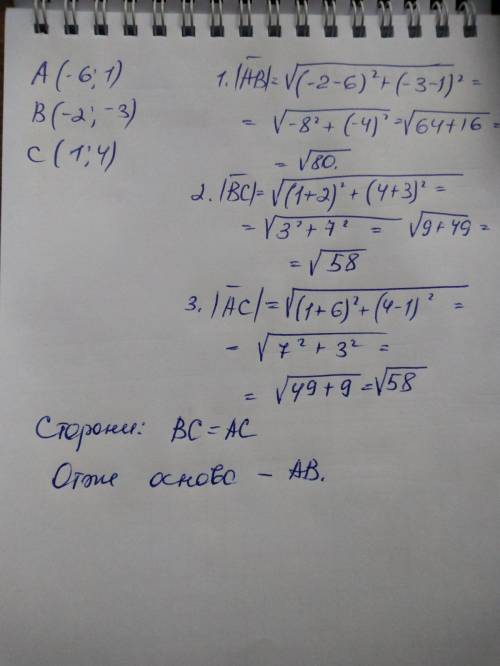 A (-6; 1)
B (-2; -3)
C (1; 4)
1. |AB| = √((-2-6)² + (-3-1)²) =
= √(-8² + (-4)²) = √(64+16) =
= √80.
2. |BC| = √((1+2)² + (4+3)²) =
= √(3² + 7²) = √(9+49) =
= √58
3. |AC| = √((1+6)² + (4-1)²) =
- √(7² + 3²) =
= √(49+9) = √58
Сторони: BC = AC
Отже основа - AB.